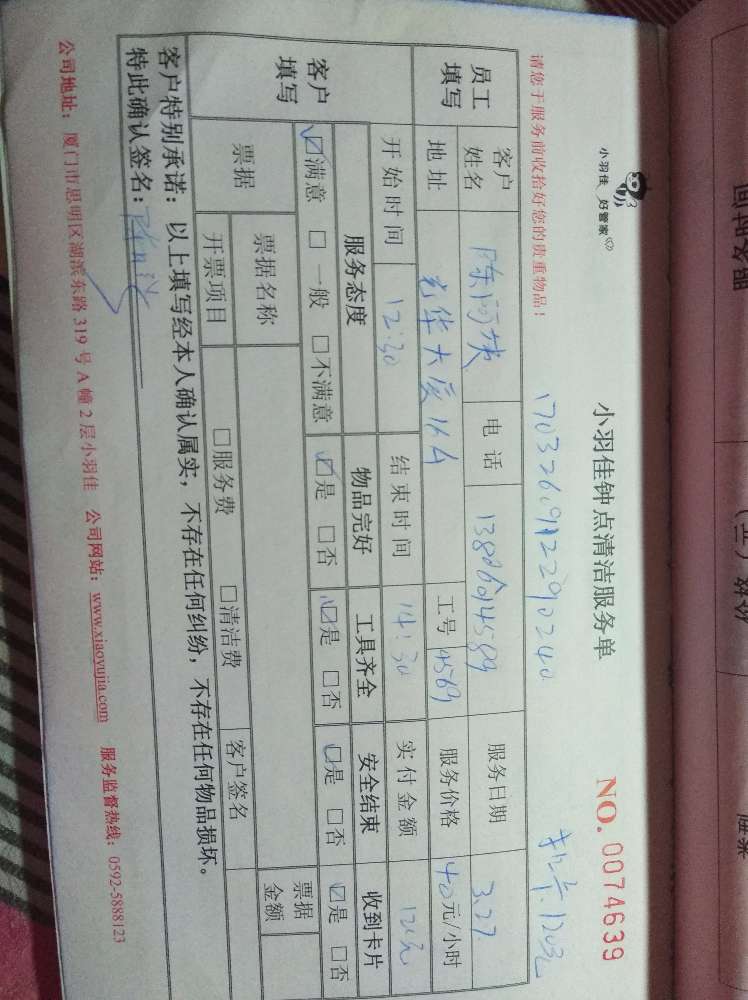 小羽佳 好管家
小羽佳钟点清洁服务单
NO. 0074639
17032609122290240
请您于服务前收拾好您的贵重物品!
120元
员工填写
客户姓名
陈阿姨
电话
13886914589
服务日期
3.27
地址
光华大厦16A
工号
4569
服务价格
40元/小时
开始时间
12:30
结束时间
14:30
实付金额
120元
客户填写
服务态度
物品完好
工具齐全
安全结束
收到卡片
☑满意 □一般 □不满意
☑是 □否
☑是 □否
☑是 □否
☑是 □否
票据
票据名称
票据金额
开票项目
□服务费 □清洁费
客户签名
客户特别承诺:以上填写经本人确认属实,不存在任何纠纷,不存在任何物品损坏。
特此确认签名:
公司地址:厦门市思明区湖滨东路 319 号 A 幢 2 层小羽佳 公司网站:www.xiaoyujia.com 服务监督热线:0592-5888123